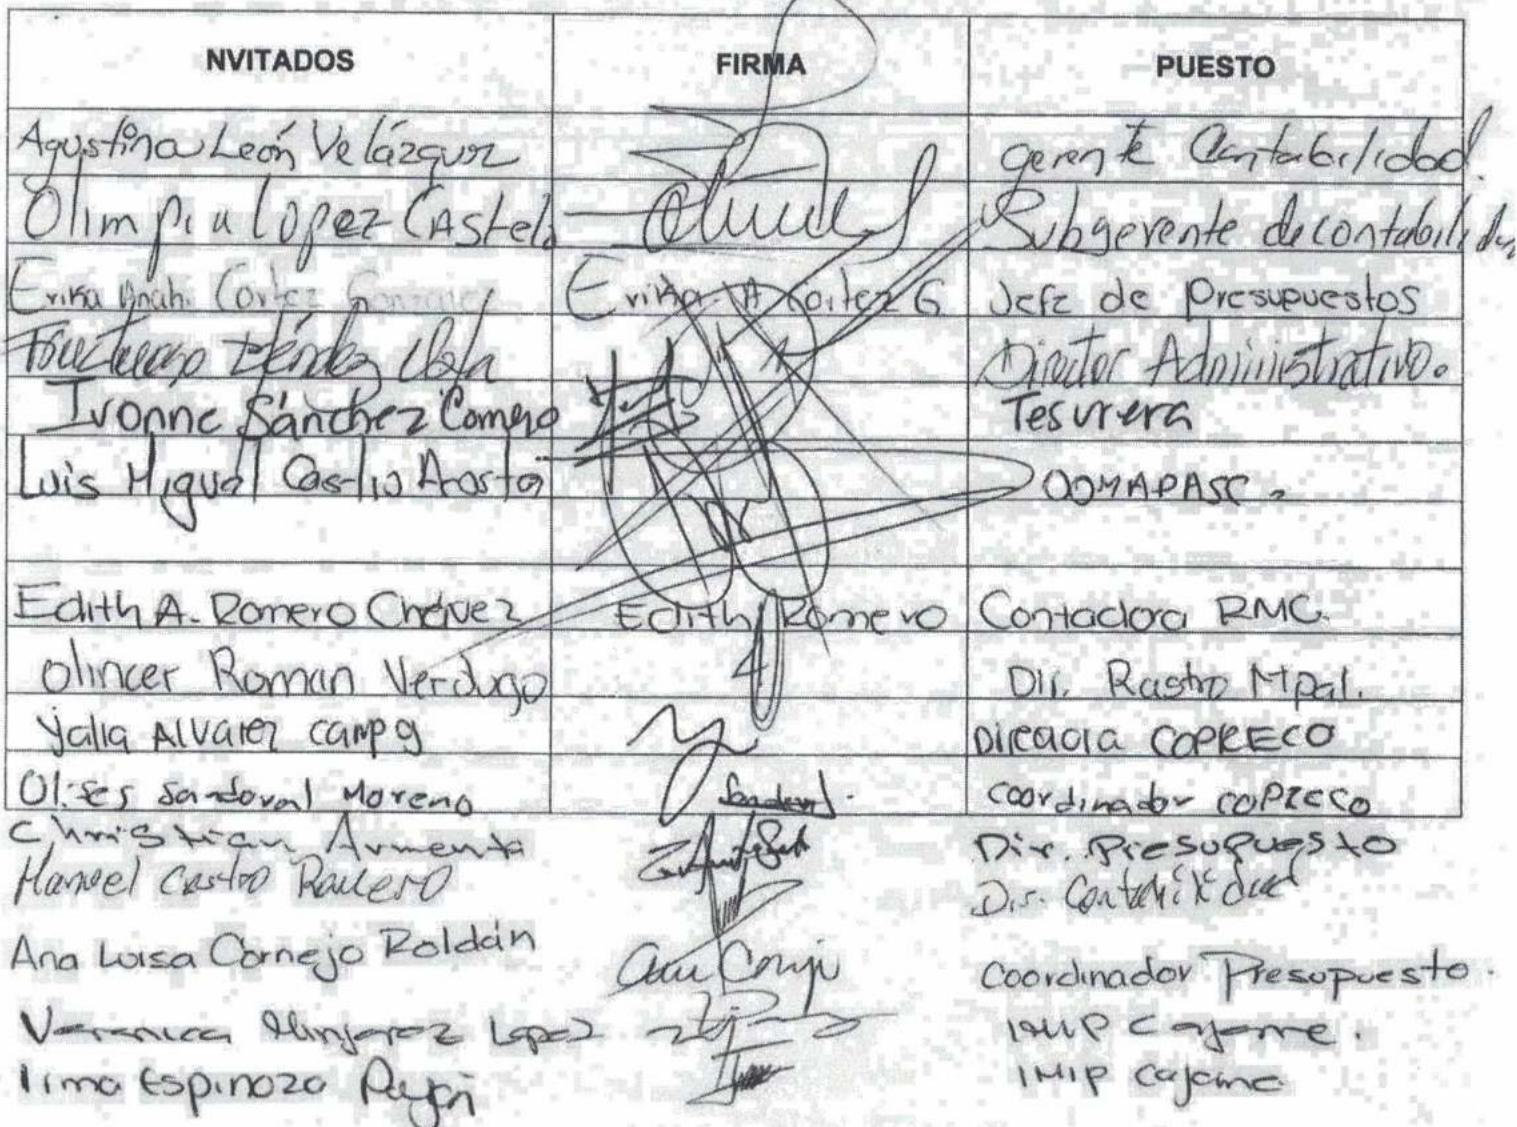 NVITADOS FIRMA PUESTO
Agustina León Velázquez gerente Contabilidad.
Olimpia Lopez Castelo Subgerente de contabilidad
Erika Anahi Cortez Gonzalez Erika A Cortez G Jefe de Presupuestos
Méndez Director Administrativo.
Ivonne Sánchez Romero Tesurera
Luis Miguel Castro Acosta OOMAPASC.
Edith A. Romero Chávez Edith Romero Contadora RMC.
Olincer Roman Verdugo Dir. Rastro Mpal.
Alvarez Campo Directora COPRECO
Olises Sandoval Moreno Sandoval. Coordinador COPRECO
Christian Armenta Dir. Presupuesto
Manuel Castro Dir. Contabilidad
Ana Luisa Cornejo Roldán Ana Cornejo Coordinador Presupuesto.
Veronica Minjarez Lopez IMIP Cajeme.
Irma Espinoza Payán IMIP Cajeme